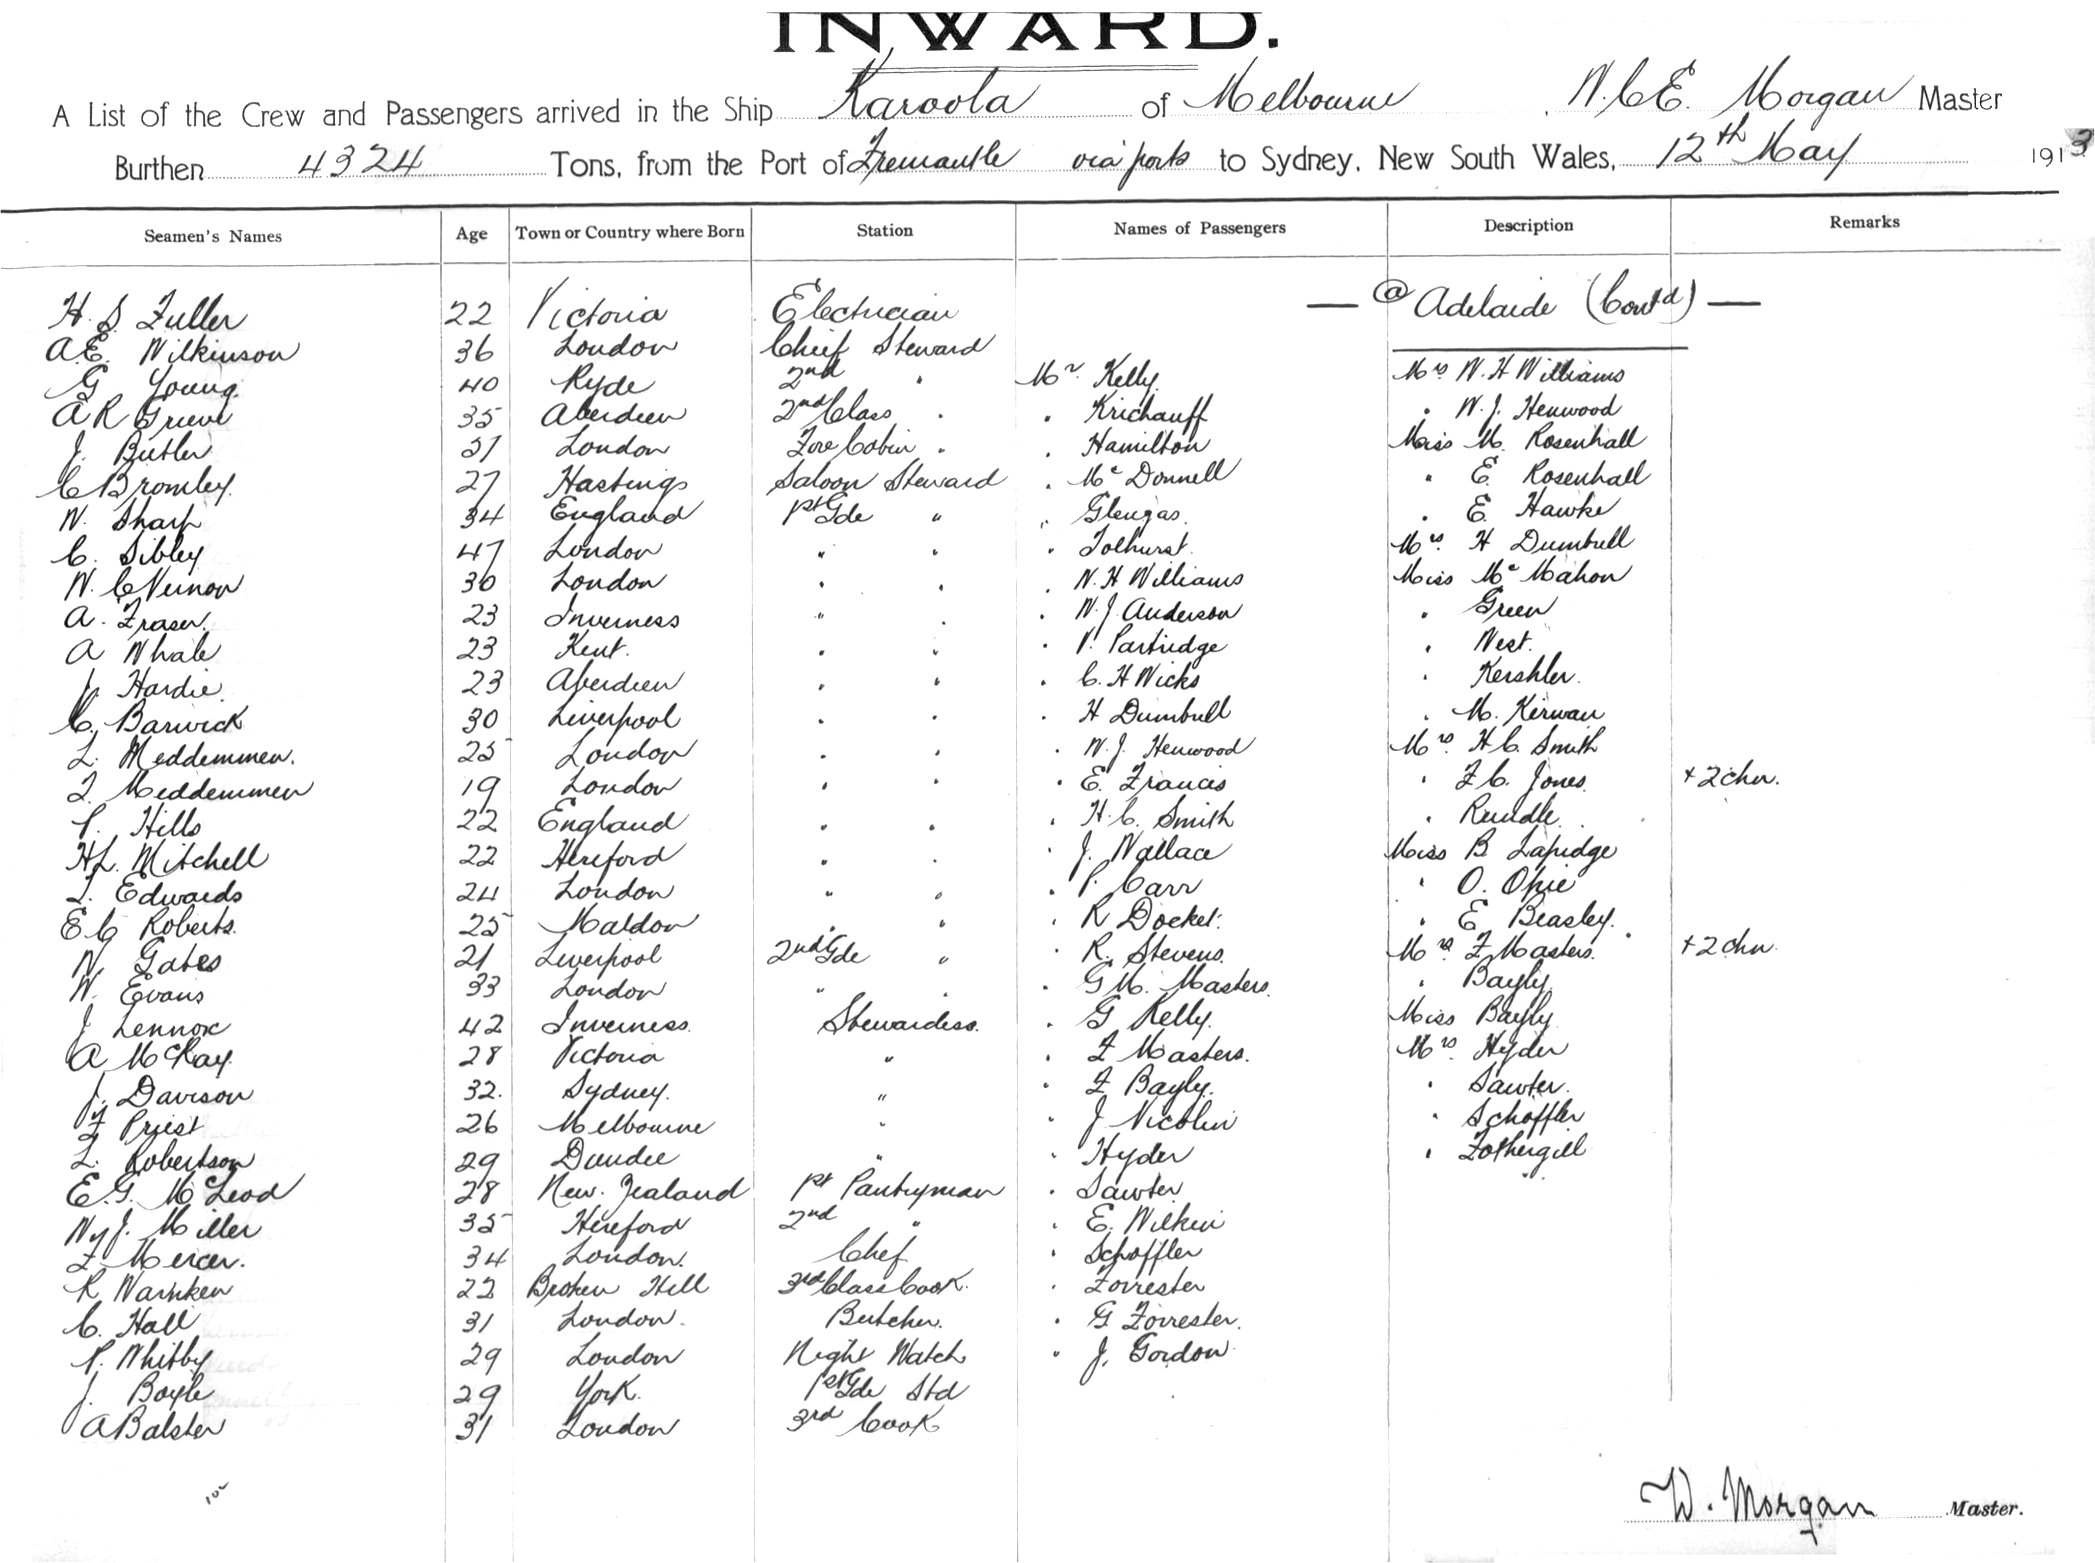 INWARD.
A List of the Crew and Passengers arrived in the Ship Karoola of Melbourne W. C. E. Morgan Master
Burthen 4324 Tons, from the Port of Fremantle via ports to Sydney, New South Wales, 12th May 1913
Seamen's Names Age Town or Country where Born Station Names of Passengers Description Remarks
H. S. Fuller 22 Victoria Electrician — @ Adelaide (Contd) —
A. E. Wilkinson 36 London Chief Steward
G Young 40 Ryde 2nd " Mr. Kelly Mrs W. H Williams
A R Grieve 35 Aberdeen 2nd Class " " Krichauff " W. J. Henwood
J. Butler 31 London Fore Cabin " " Hamilton Miss M. Rosenhall
C Bromley 27 Hastings Saloon Steward " Mc Donnell " E. Rosenhall
W. Sharp 34 England 1st Gde " " Glengas " E. Hawke
C. Sibley 47 London " " " Tolhurst Mrs. H Dumbull
W. C Vernon 30 London " " " W. H Williams Miss Mc Mahon
A. Fraser 23 Inverness " " " W. J. Anderson " Green
A Whale 23 Kent. " " " V. Partridge " West.
J. Hardie 23 Aberdeen " " " C. H Wicks " Kershler.
C. Barwick 30 Liverpool " " " H Dumbull " M. Kirwan
L. Meddemmen. 25 London " " " W. J. Henwood Mrs. H. C. Smith
F. Meddemmen 19 London " " " E. Francis " F. C. Jones + 2 chn.
P. Hills 22 England " " " H. C. Smith " Rundle
H L. Mitchell 22 Hereford " " " J. Wallace Miss B Lapidge
T. Edwards 24 London " " " P. Carr " O. Opie
E. C Roberts. 25 Maldon " " " R Docket. " E Beasley.
W Gates 21 Liverpool 2nd Gde " " R. Stevens Mrs. F Masters. + 2 chn
W. Evans 33 London " " " G M. Masters. " Bayly
J Lennox 42 Inverness. Stewardess. " G Kelly. Miss Bayly
A McKay 28 Victoria " " F Masters. Mrs. Hyder
J. Davison 32. Sydney. " " F Bayly. " Sawter.
F Priest 26 Melbourne " " J Nicolin " Schoffler
L. Robertson 29 Dundee " " Hyder " Fothergill
E. G. McLeod 28 New. Zealand 1st Pantryman " Sawter
Wm J. Miller 35 Hereford 2nd " " E. Wilkin
F Mercer. 34 London. Chef " Schoffler
R Warnken 22 Broken Hill 3rd Class Cook. " Forrester
C. Hall 31 London. Butcher. " G Forrester.
P. Whitby 29 London Night Watch " J. Gordon
J. Boyle 29 York. 1st Gde Std
A Balster 31 London 3rd Cook
W. Morgan Master.